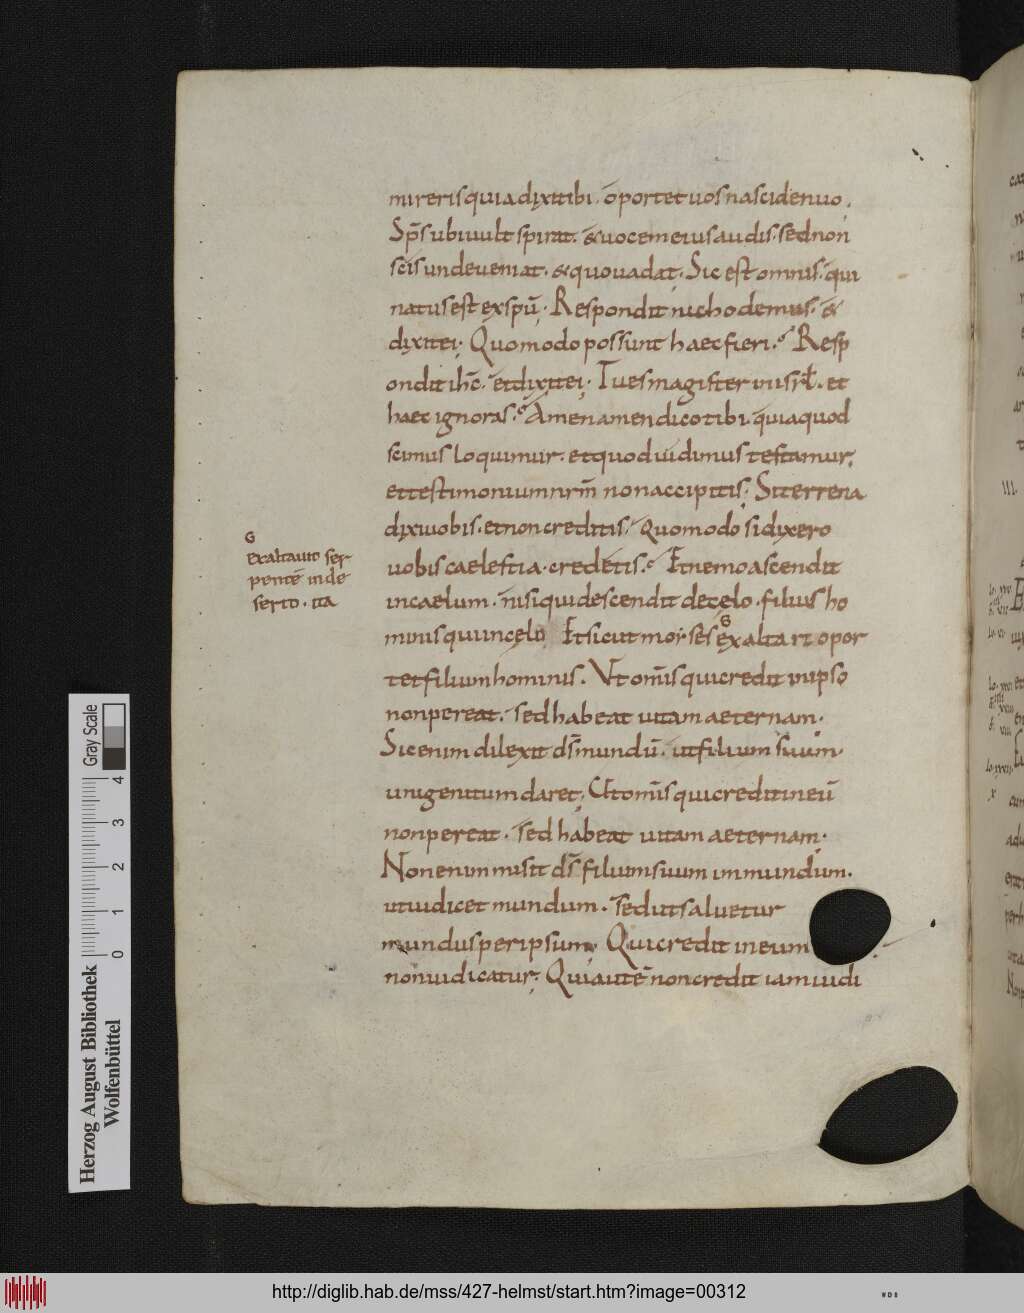 mireris quia dixi tibi. oportet uos nasci denuo.
Sp̅s ubi uult spirat. & uocem eius audis. sed non
scis unde ueniat. & quo uadat. Sic est omnis. qui
natus est ex spu̅. Respondit nichodemus. &
dixit ei; Quomodo possunt haec fieri? Resp
ondit ih̅c. et dixit ei; Tu es magister in isrl̅. et
haec ignoras? Amen amen dico tibi. quia quod
scimus loquimur. et quod uidimus testamur;
et testimonium nr̅m non accipitis; Si terrena
dixi uobis. et non creditis. quomodo si dixero
uobis caelestia. credetis? Et nemo ascendit
in caelum. nisi qui descendit de celo. filius ho
minis qui in celo Et sicut moi·ses exaltari opor
tet filium hominis. Vt omi̅s qui credit in ipso
non pereat. sed habeat uitam aeternam.
Sic enim dilexit ds̅ mundu̅. ut filium suum
unigenitum daret; Ut omi̅s qui credit in eu̅
non pereat. sed habeat uitam aeternam;
Non enim misit ds̅ filium suum in mundum.
ut iudicet mundum. sed ut saluetur
mundus per ipsum; Qui credit in eum
non iudicatur; Qui aute̅ non credit iam iudi
G
Exaltauit ser
pente̅ in de
serto. ita
G
Herzog August Bibliothek
Wolfenbüttel
0 1 2 3 4
Gray Scale
http://diglib.hab.de/mss/427-helmst/start.htm?image=00312